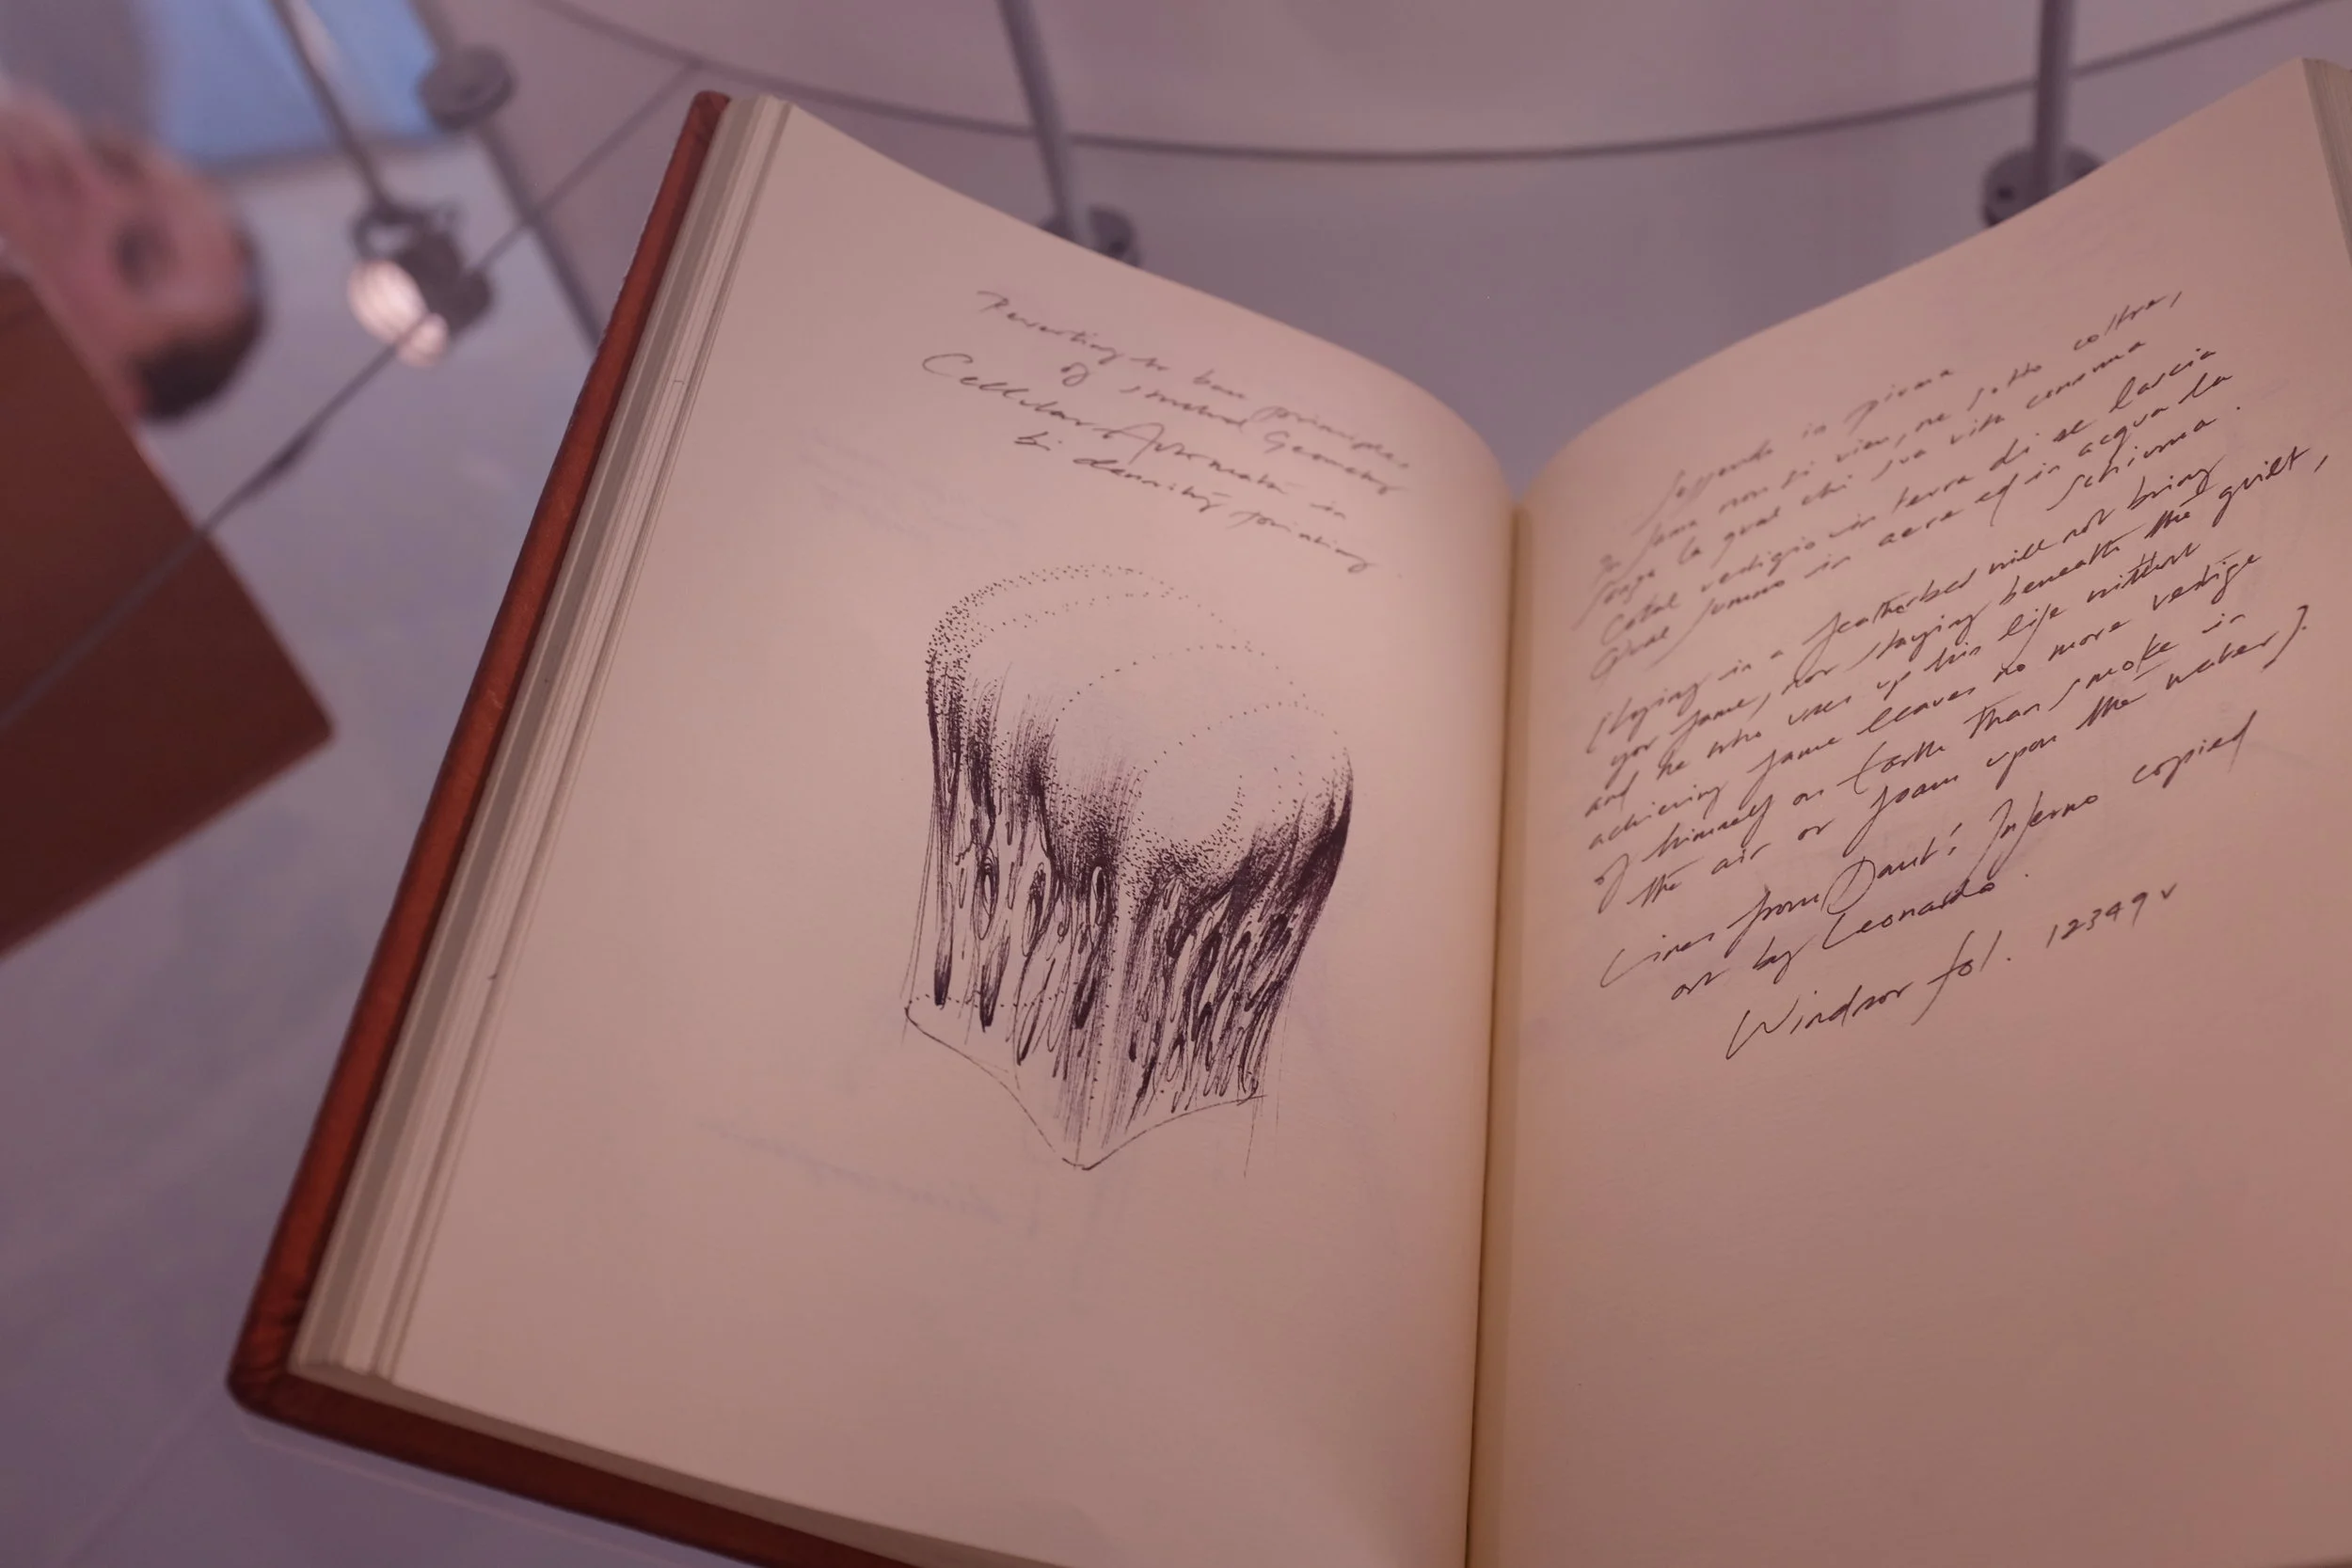 Reverting to base principles
of Geometry
Cellular Automata in
bi density printing
seggendo in piuma
in fama non si vien, ne sotto coltre,
sanza la qual chi sua vita consuma
Cotal vestigio in terra di se lascia
Qual fummo in aere ed in acqua la
schiuma.
(lying in a featherbed will not bring
you fame, nor staying beneath the quilt,
and he who uses up his life without
achieving fame leaves no more vestige
of himself on Earth than smoke in
the air or foam upon the water).
Lines from Dante's Inferno copied
out by Leonardo.
Windsor fol. 12349 v